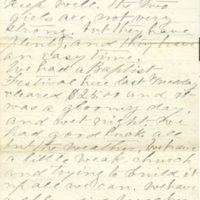 keep well. The two
girls are not very
strong. but they have
plenty, and they have
an easy time.
We had a Baptist
Festival here last Tuesday,
cleared $25.00 and it
was a gloomy day,
and wet night. We
had good luck all
but the weather, we have
a little weak church
and trying to build it
up all we can. We have